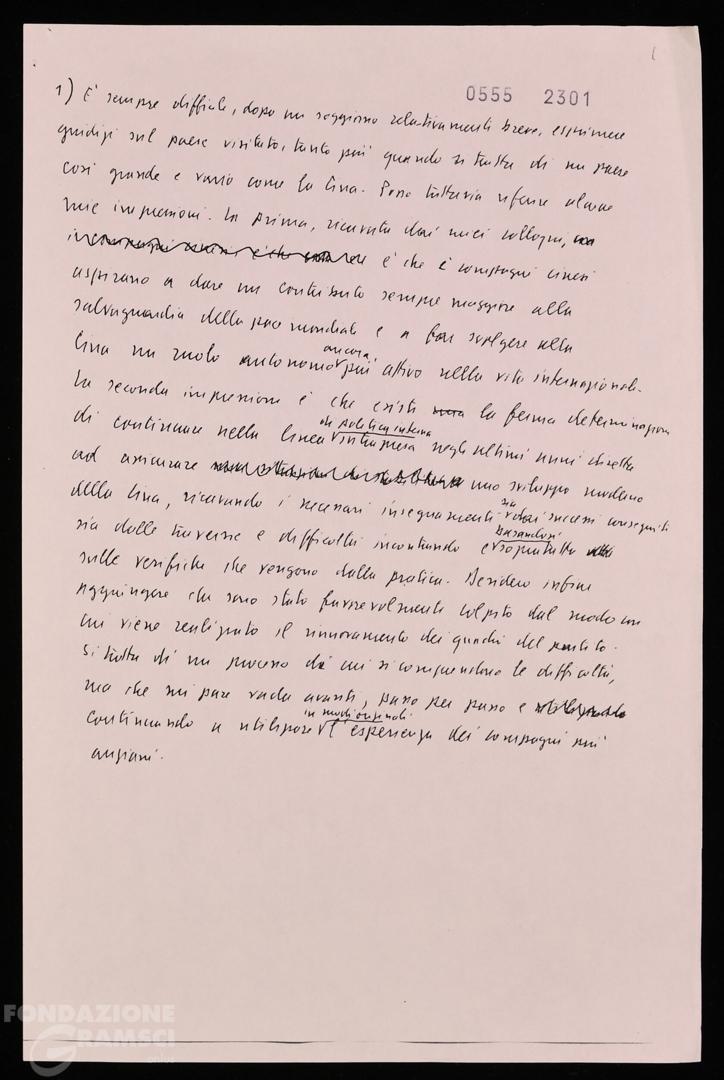 1
0555 2301
1) E' sempre difficile, dopo un soggiorno relativamente breve, esprimere
giudizi sul paese visitato, tanto più quando si tratta di un paese
così grande e vario come la Cina. Posso tuttavia riferire alcune
mie impressioni. La prima, ricavata dai miei colloqui,
è che i compagni cinesi
aspirano a dare un contributo sempre maggiore alla
salvaguardia della pace mondiale e a far svolgere alla
ancora
Cina un ruolo autonomo più attivo nella vita internazionale.
La seconda impressione è che esiste la ferma determinazione
di politica interna
di continuare nella linea intrapresa negli ultimi anni diretta
ad assicurare uno sviluppo moderno
sia
della Cina, ricavando i necessari insegnamenti dai successi conseguiti
basandosi
sia dalle traversie e difficoltà incontrando e soprattutto
sulle verifiche che vengono dalla pratica. Desidero infine
aggiungere che sono stato favorevolmente colpito dal modo in
cui viene realizzato il rinnovamento dei quadri del partito.
Si tratta di un processo di cui si comprendono le difficoltà,
ma che mi pare vada avanti, passo per passo e
in modi originali
continuando a utilizzare l'esperienza dei compagni più
anziani.
FONDAZIONE
GRAMSCI
onlus